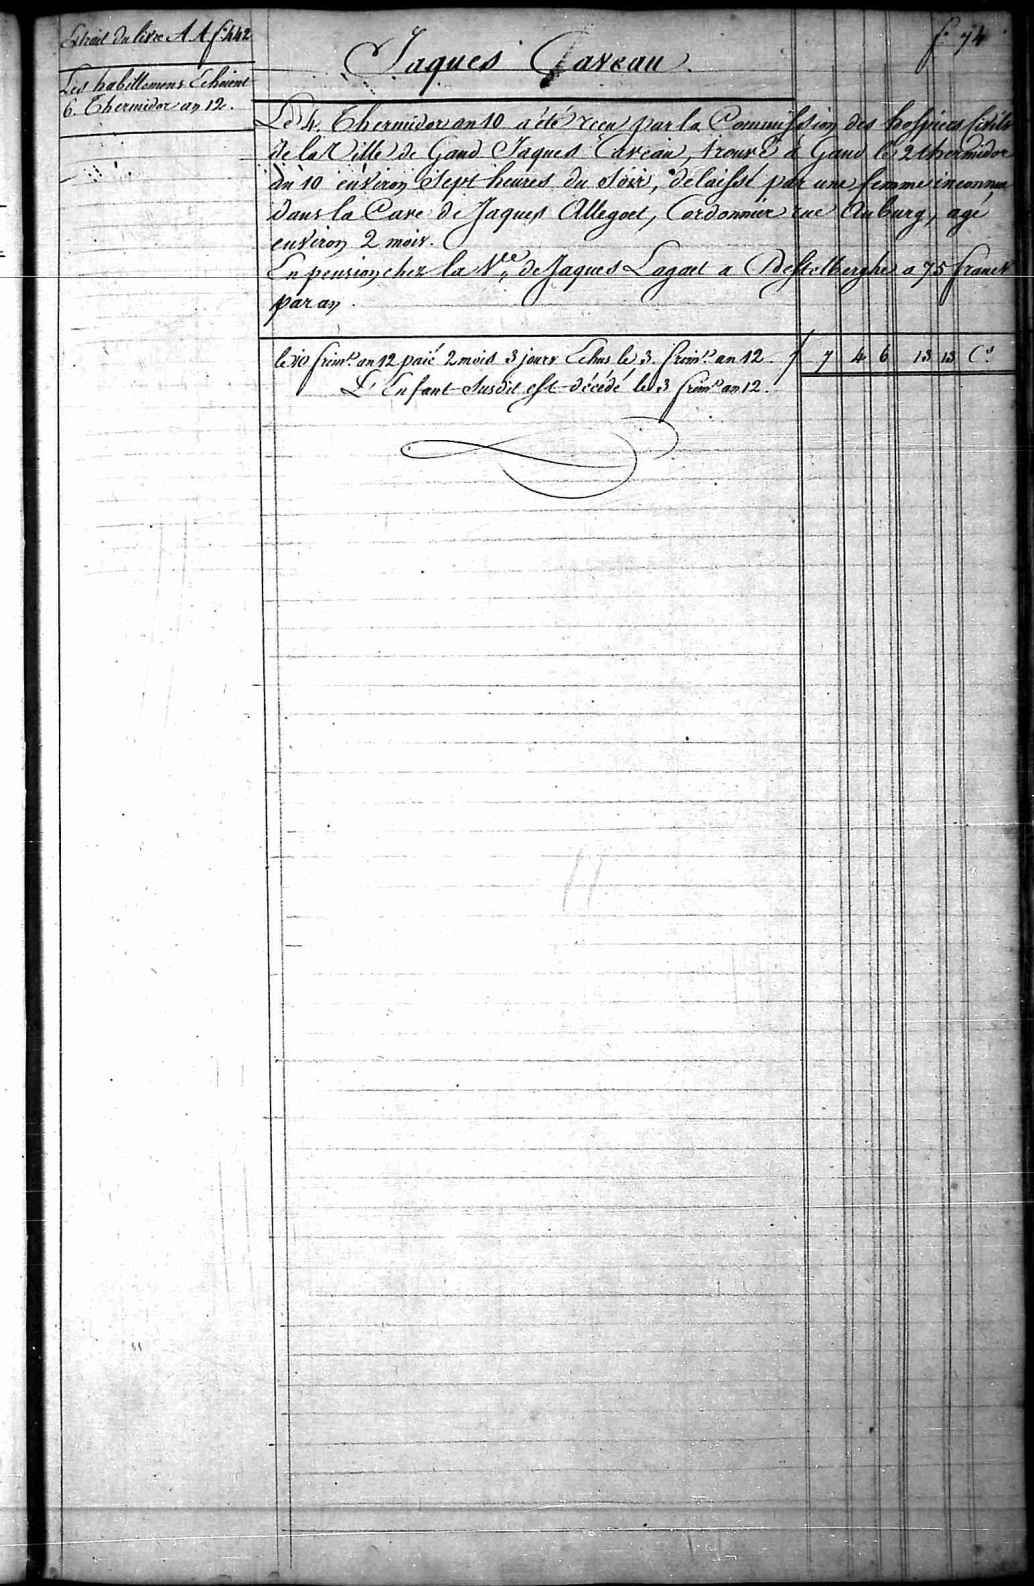 Extrait du livre A A f° 442
f° 74
Jaques Caveau.
Les habillemens Echoient
6. Thermidor an 12.
Le 4. Thermidor an 10 a été reçu par la Commission des hospices Civils
de la Ville de Gand Jaques Caveau, trouvé à Gand le 2 thermidor
an 10 environ Sept heures du Soir, délaissé par une femme inconnue
dans la Cave de Jaques Allegoet, Cordonnier rue Auburg, agé
environ 2 mois.
En pension chez la Vee de Jaques Lagaet a Destelberghe a 75 francs
par an.
le 10 frimre an 12 paié 2 mois 3 jours Echus le 3 frimre an 12 7 4 6 13 13 Cs
L'Enfant Susdit est décédé le 3 frimre an 12.